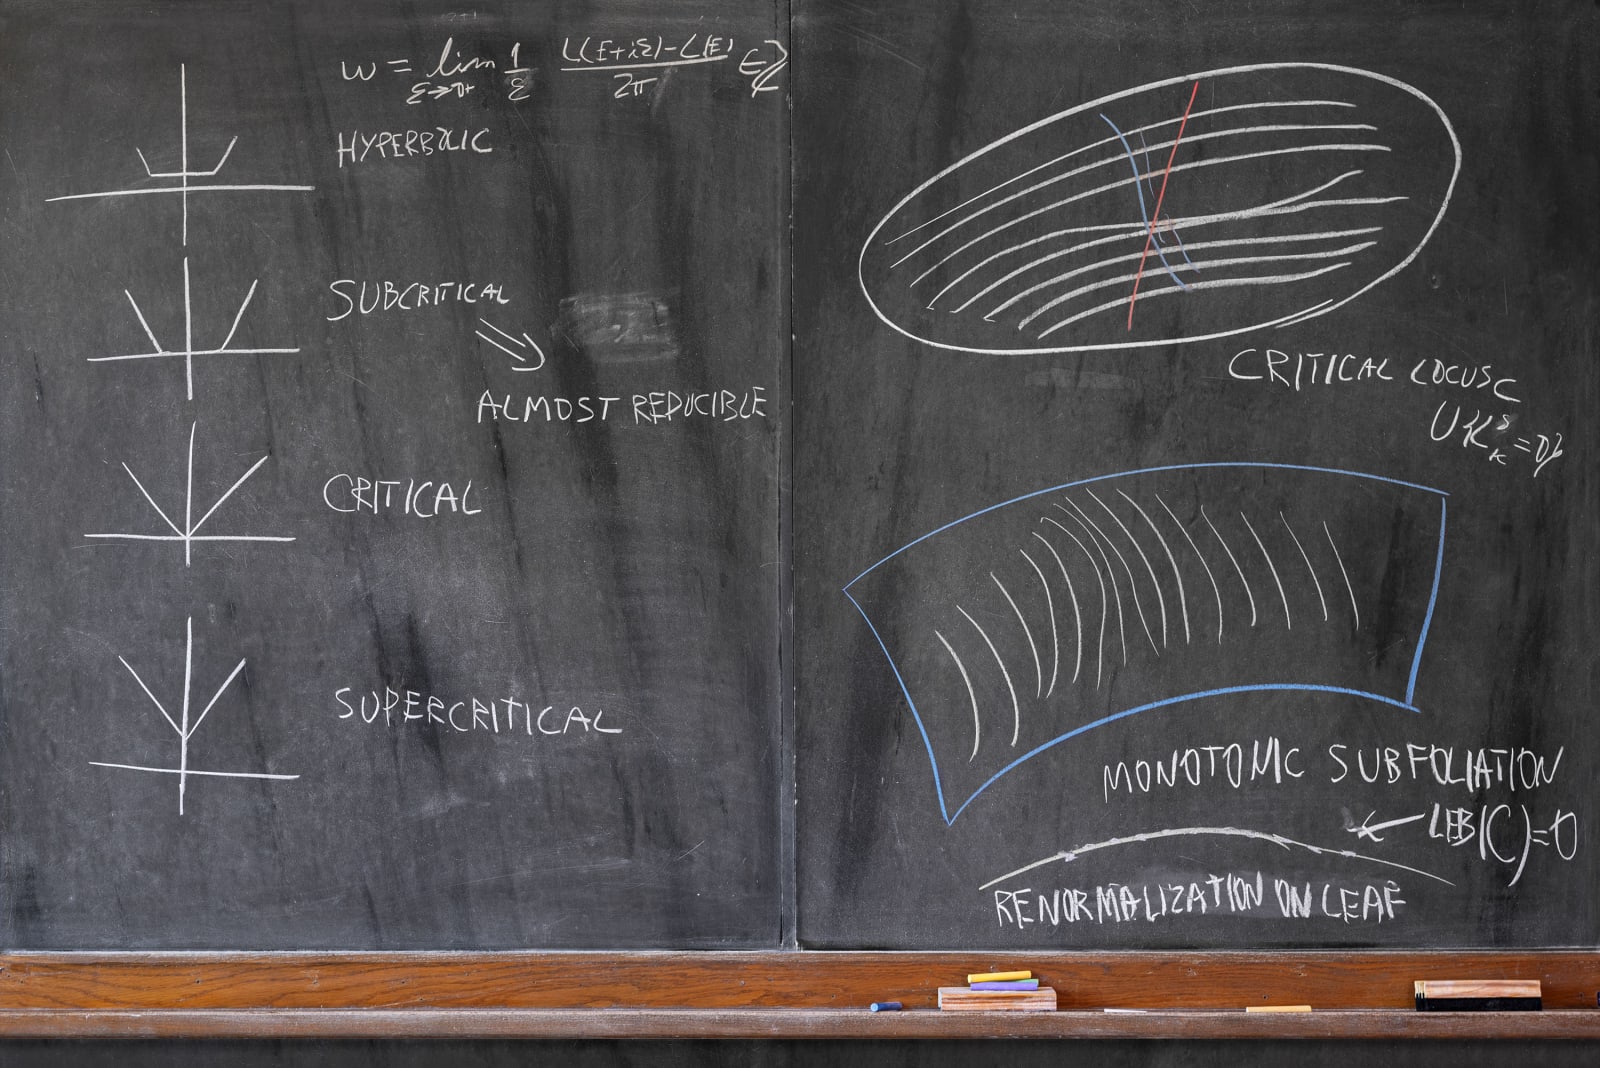 ω = lim ε→0+ 1/ε L(E+iε)-L(E)/2π ∈ ℤ
HYPERBOLIC
SUBCRITICAL
⇒
ALMOST REDUCIBLE
CRITICAL
SUPERCRITICAL
CRITICAL LOCUS C
MONOTONIC SUBFOLIATION
← LEB(C)=0
RENORMALIZATION ON LEAF